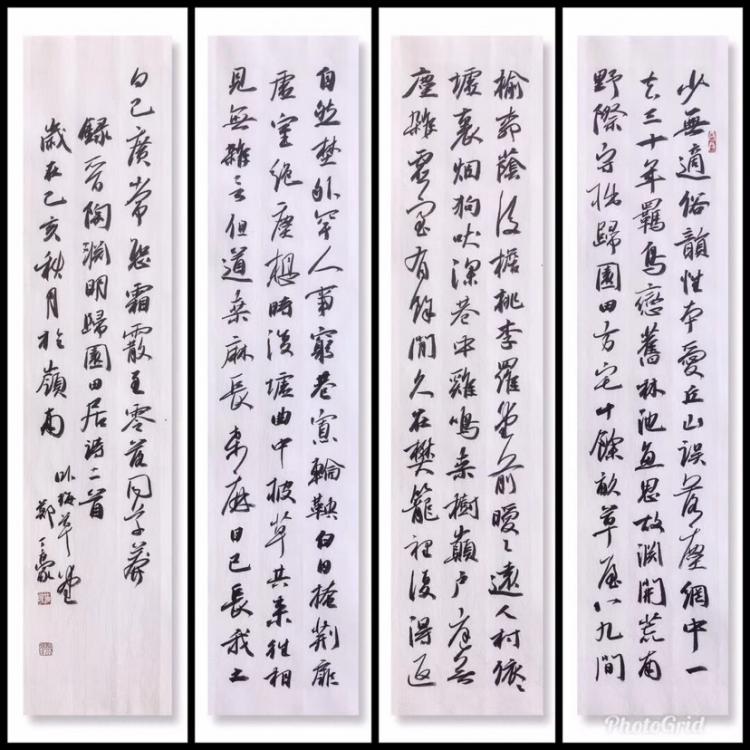 少無適俗韻性本愛丘山誤落塵網中一
去三十年羈鳥戀舊林池魚思故淵開荒南
野際守拙歸園田方宅十餘畝草屋八九間
榆柳蔭後檐桃李羅堂前曖々遠人村依々
墟裏烟狗吠深巷中雞鳴桑樹巔戶庭無
塵雜虛室有餘閒久在樊籠裡復得返
自然野外罕人事窮巷寡輪鞅白日掩荊扉
虛室絕塵想時復墟曲中披草共來往相
見無雜言但道桑麻長桑麻日已長我土
日已廣常恐霜霰至零落同草莽
錄晉陶淵明歸園田居詩二首
歲在己亥秋月於嶺南
卧梅草堂
鄭
PhotoGrid